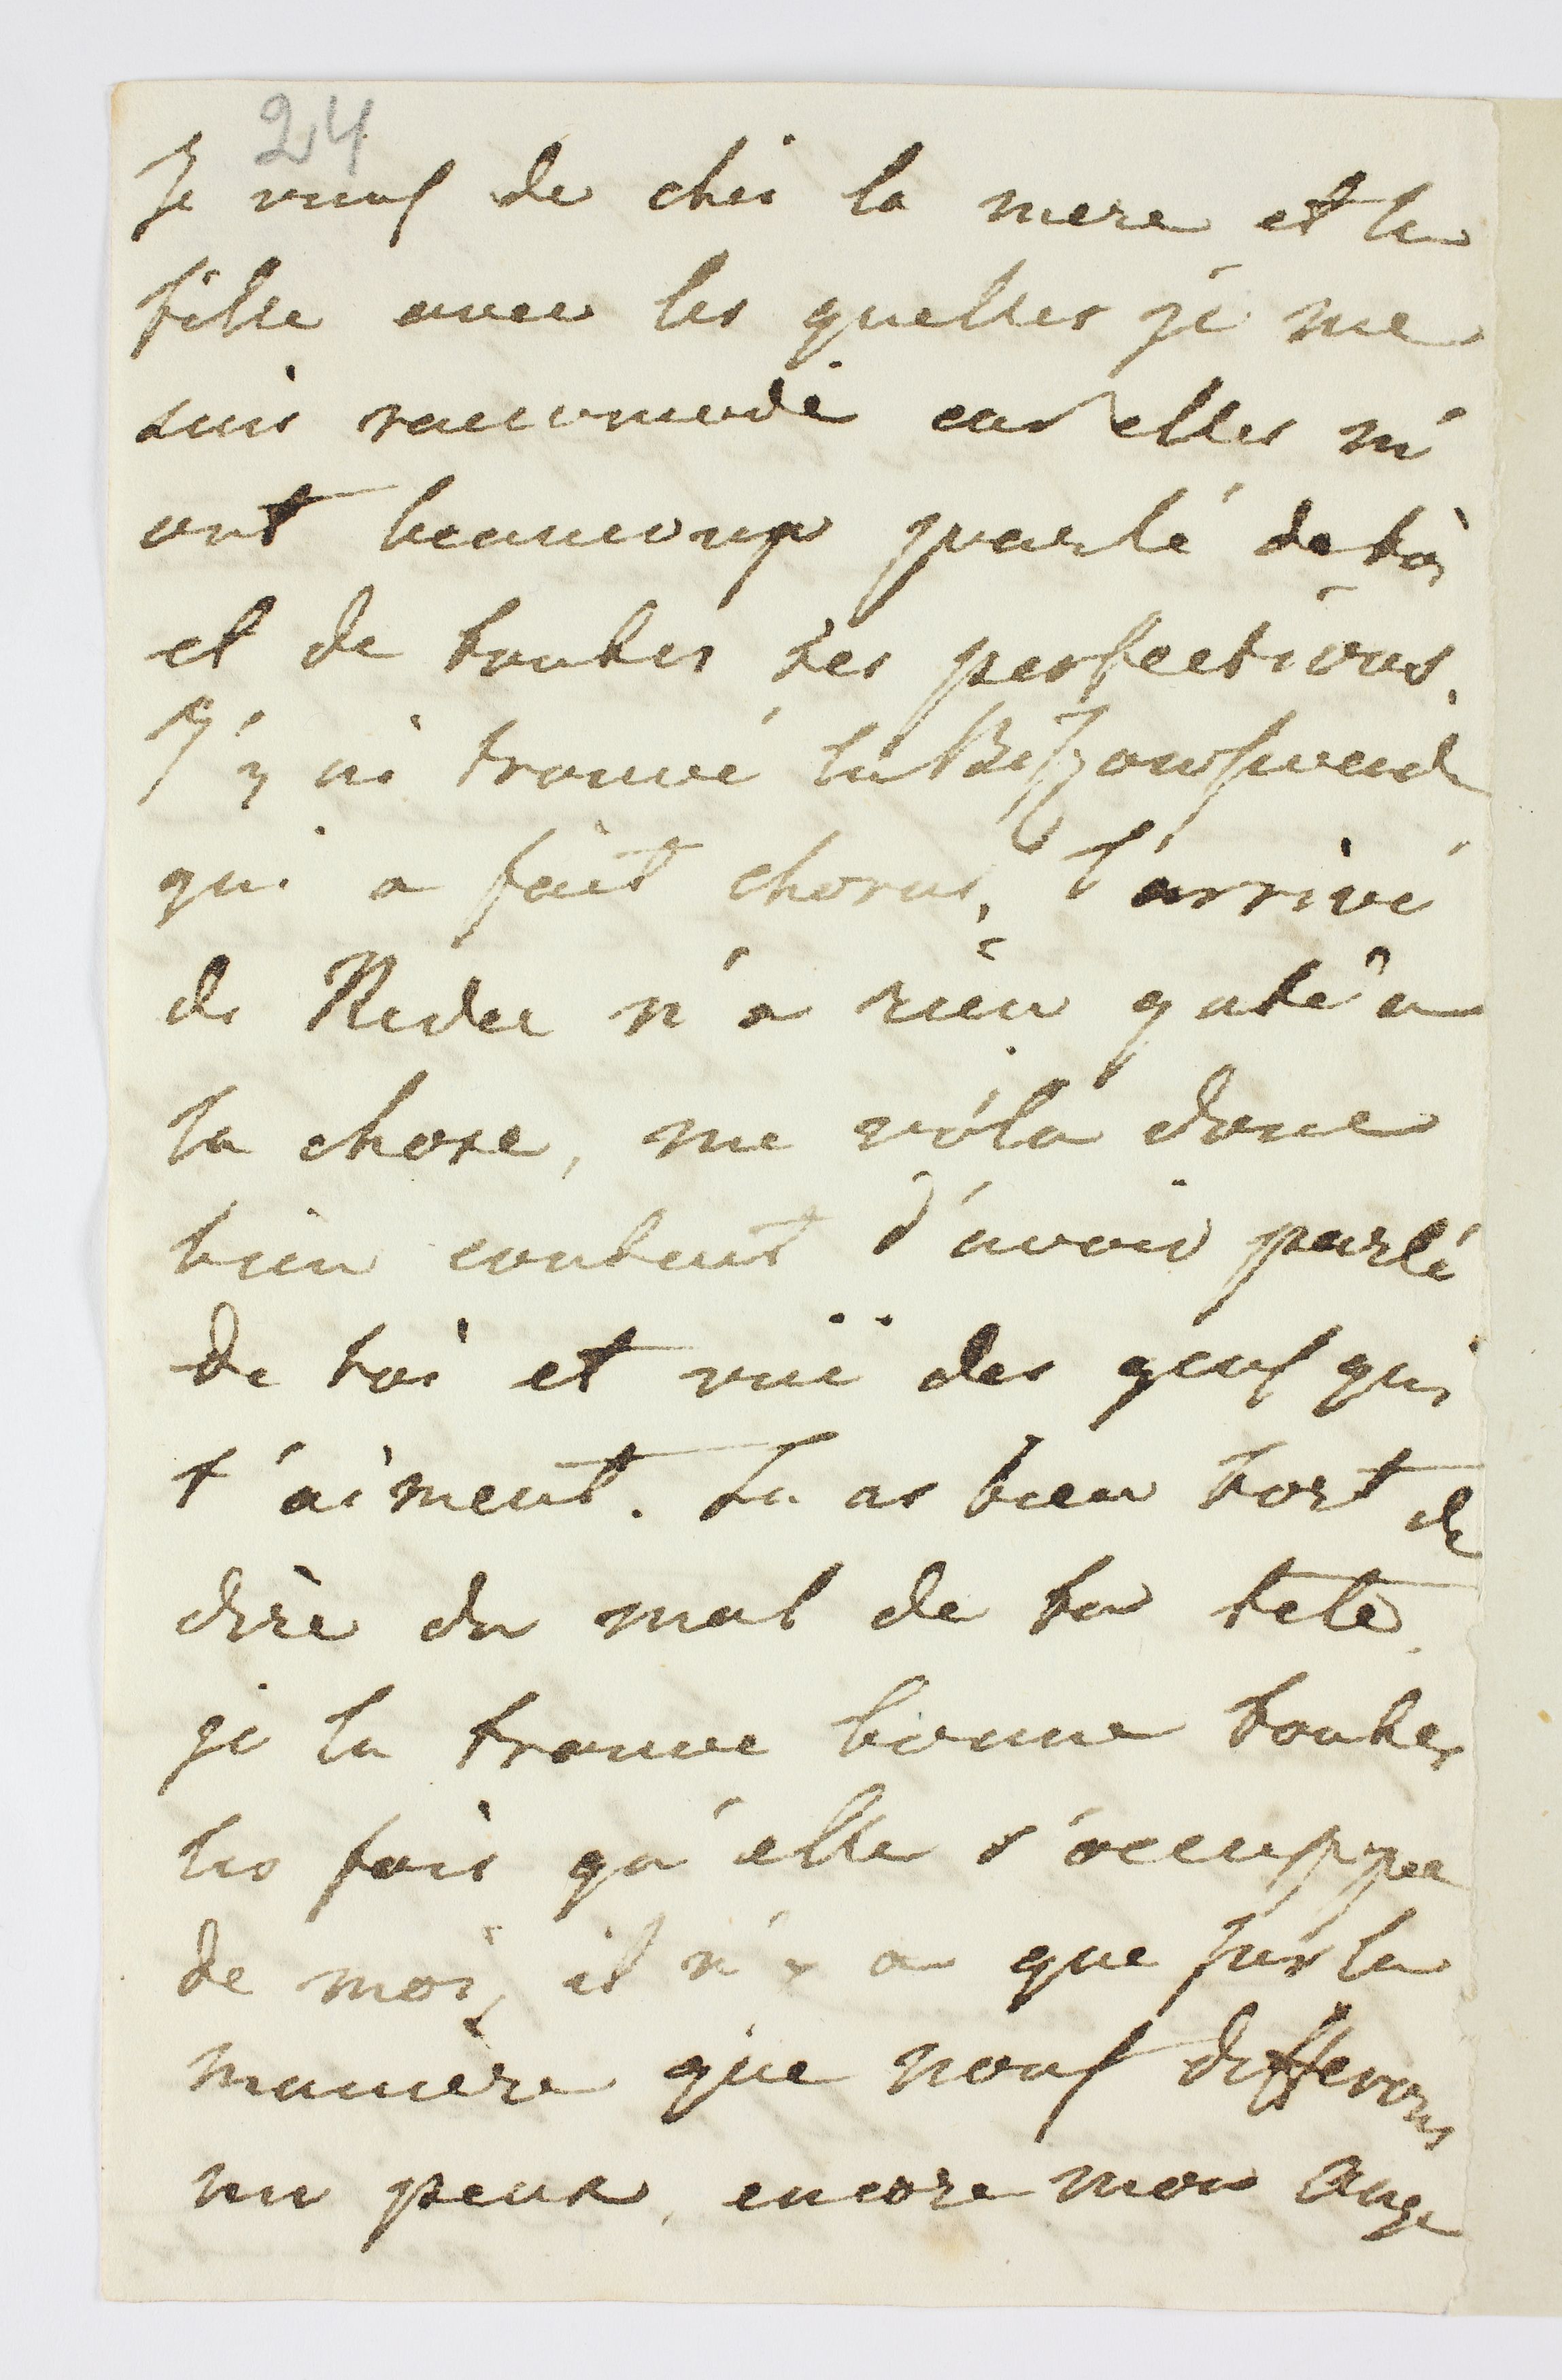 24
Je viens de chés la mere et la
fille avec les quelles je me
suis racomodé car elles m'
ont beaucoup parlé de toi
et de toutes tes perfections.
J'y ai trouvé la
qui a fait chorus, l'arrivé
de n'a rien gaté a
la chose, me vóla donc
bien content d'avoir parlé
de toi et vuë des gens qui
t'aiment. Tu as bien tort de
dire du mal de ta tete
je la trouve bonne toutes
les fois qu'elle s'occuppe
de moi, il n'y a que sur la
maniere que nous differons
un peux, encore mon ange